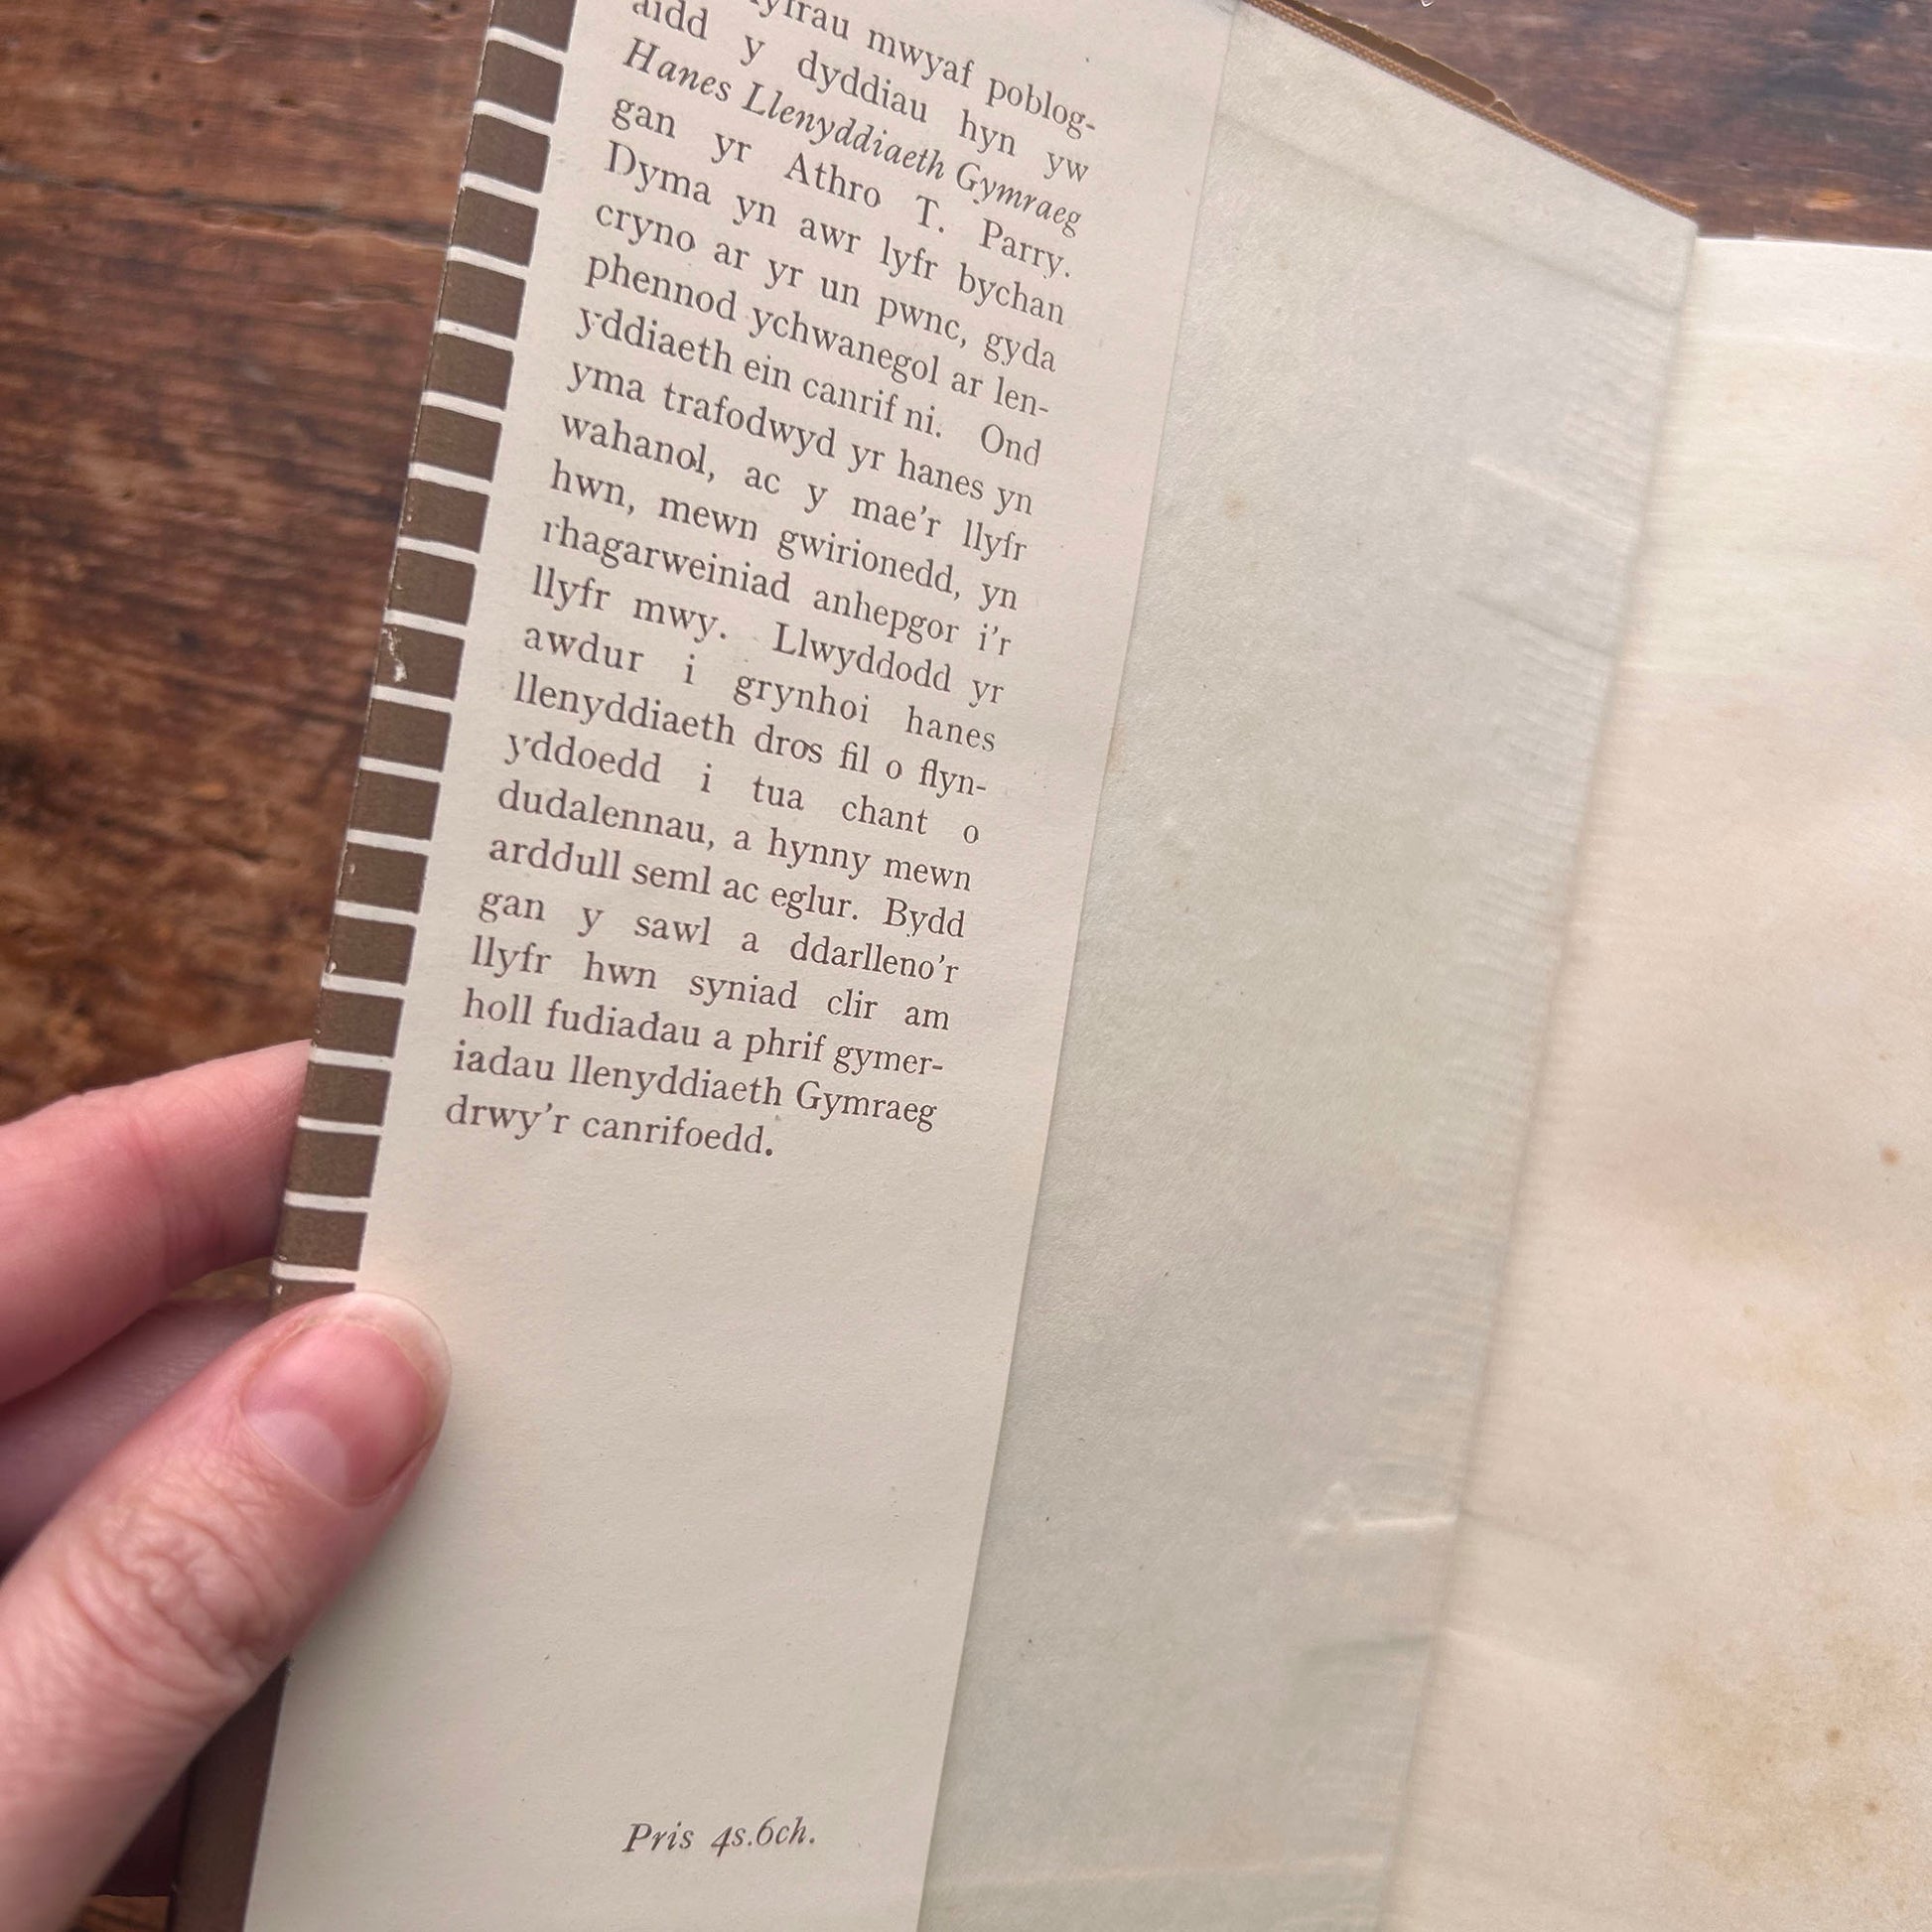 mwyaf poblog-
aidd y dyddiau hyn yw
Hanes Llenyddiaeth Gymraeg
gan yr Athro T. Parry.
Dyma yn awr lyfr bychan
cryno ar yr un pwnc, gyda
phennod ychwanegol ar len-
yddiaeth ein canrif ni. Ond
yma trafodwyd yr hanes yn
wahanol, ac y mae'r llyfr
hwn, mewn gwirionedd, yn
rhagarweiniad anhepgor i'r
llyfr mwy. Llwyddodd yr
awdur i grynhoi hanes
llenyddiaeth dros fil o flyn-
yddoedd i tua chant o
dudalennau, a hynny mewn
arddull seml ac eglur. Bydd
gan y sawl a ddarlleno'r
llyfr hwn syniad clir am
holl fudiadau a phrif gymer-
iadau llenyddiaeth Gymraeg
drwy'r canrifoedd.
Pris 4s.6ch.